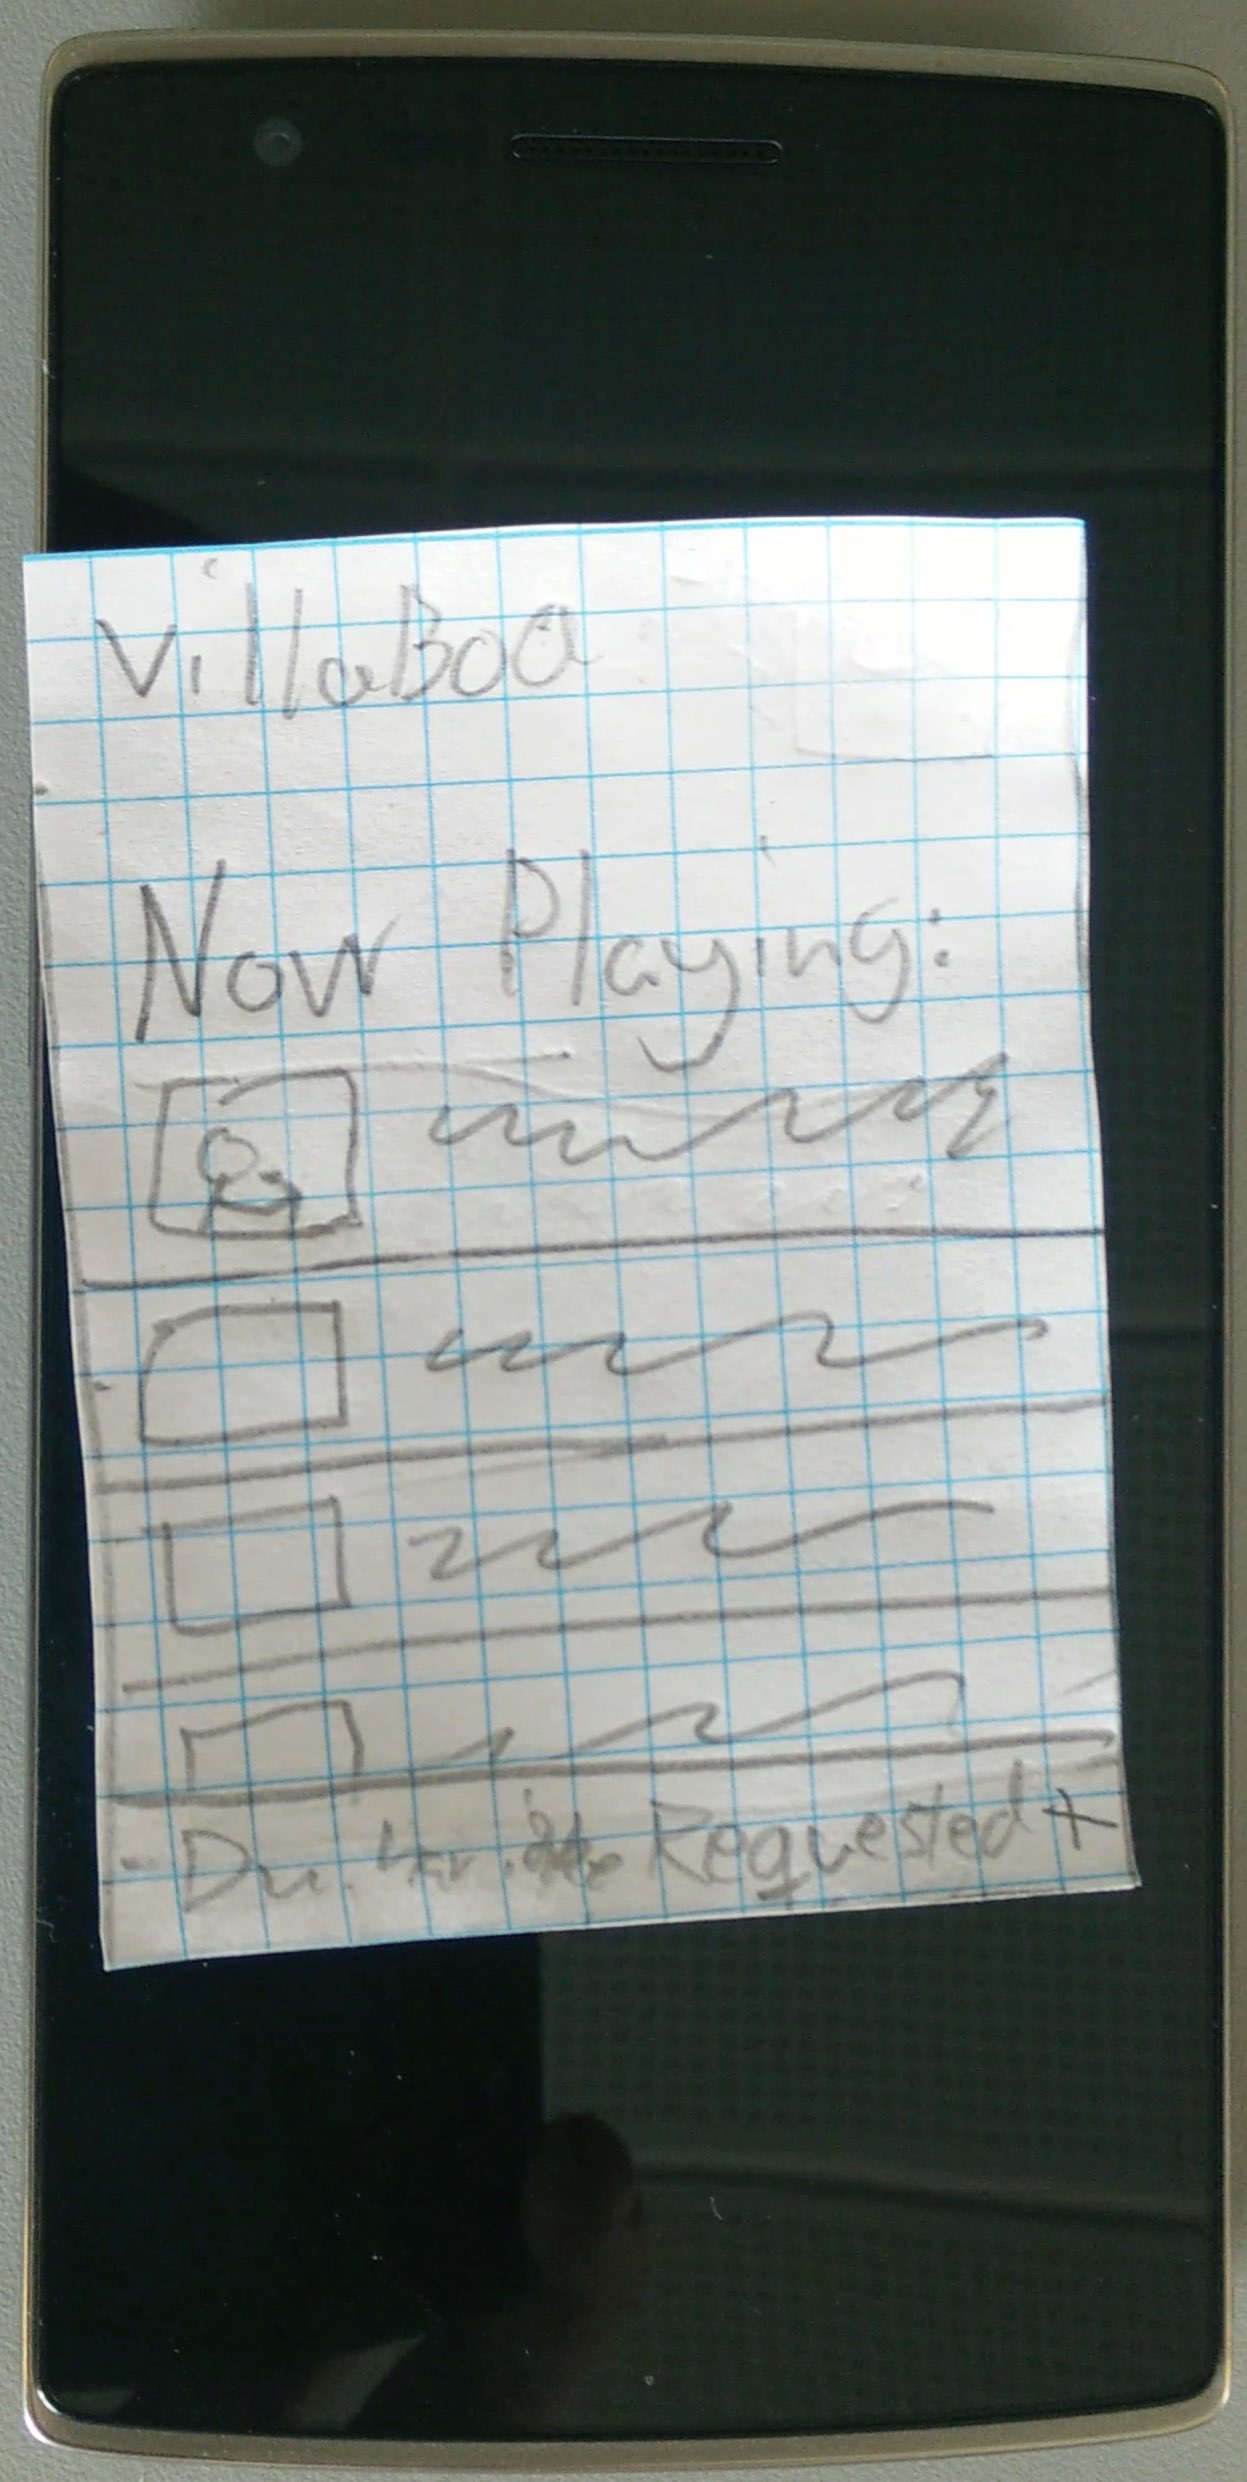 VillaBoa
Now Playing:
Requested +